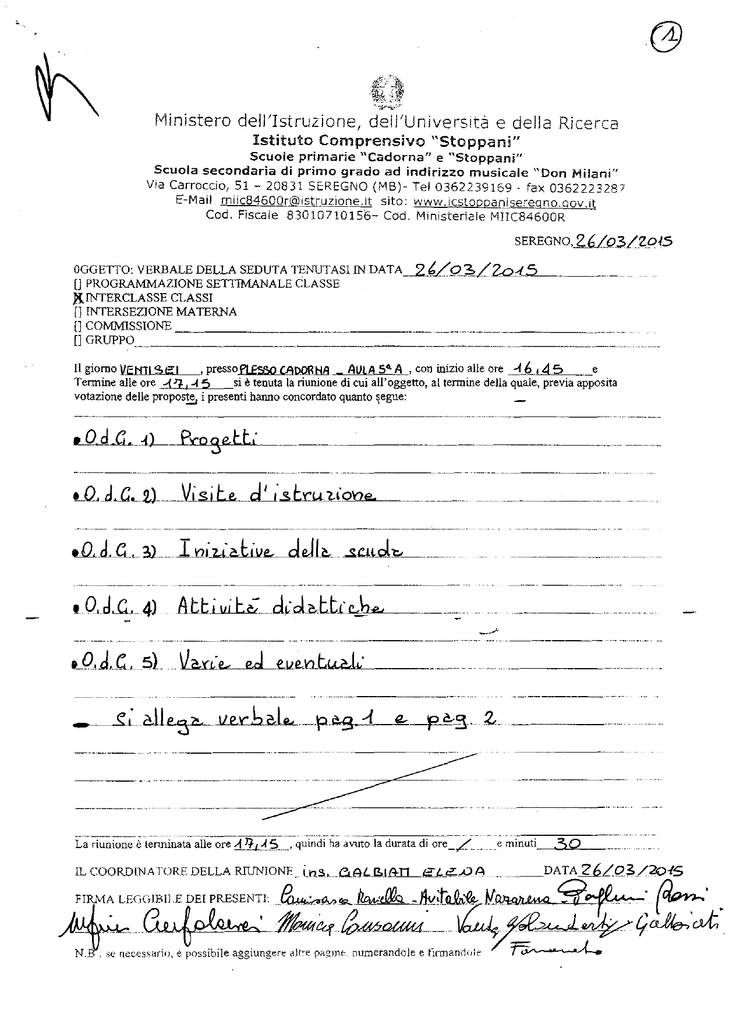 1
Ministero dell'Istruzione, dell'Università e della Ricerca
Istituto Comprensivo "Stoppani"
Scuole primarie "Cadorna" e "Stoppani"
Scuola secondaria di primo grado ad indirizzo musicale "Don Milani"
Via Carroccio, 51 – 20831 SEREGNO (MB)- Tel 0362239169 - fax 0362223287
E-Mail miic84600r@istruzione.it sito: www.icstoppaniseregno.gov.it
Cod. Fiscale 83010710156– Cod. Ministeriale MIIC84600R
SEREGNO, 26/03/2015
OGGETTO: VERBALE DELLA SEDUTA TENUTASI IN DATA 26/03/2015
[] PROGRAMMAZIONE SETTIMANALE CLASSE
[X] INTERCLASSE CLASSI
[] INTERSEZIONE MATERNA
[] COMMISSIONE
[] GRUPPO
Il giorno VENTISEI, presso PLESSO CADORNA – AULA 5ª A, con inizio alle ore 16,45 e
Termine alle ore 17,15 si è tenuta la riunione di cui all'oggetto, al termine della quale, previa apposita
votazione delle proposte, i presenti hanno concordato quanto segue:
• O.d.G. 1) Progetti
• O.d.G. 2) Visite d'istruzione
• O.d.G. 3) Iniziative della scuola
• O.d.G. 4) Attività didattiche
• O.d.G. 5) Varie ed eventuali
– Si allega verbale pag. 1 e pag. 2
La riunione è terminata alle ore 17,15, quindi ha avuto la durata di ore / e minuti 30
IL COORDINATORE DELLA RIUNIONE ins. GALBIATI ELENA DATA 26/03/2015
FIRMA LEGGIBILE DEI PRESENTI: - Avitabile Nazarena
Monica
N.B. se necessario, è possibile aggiungere altre pagine, numerandole e firmandole